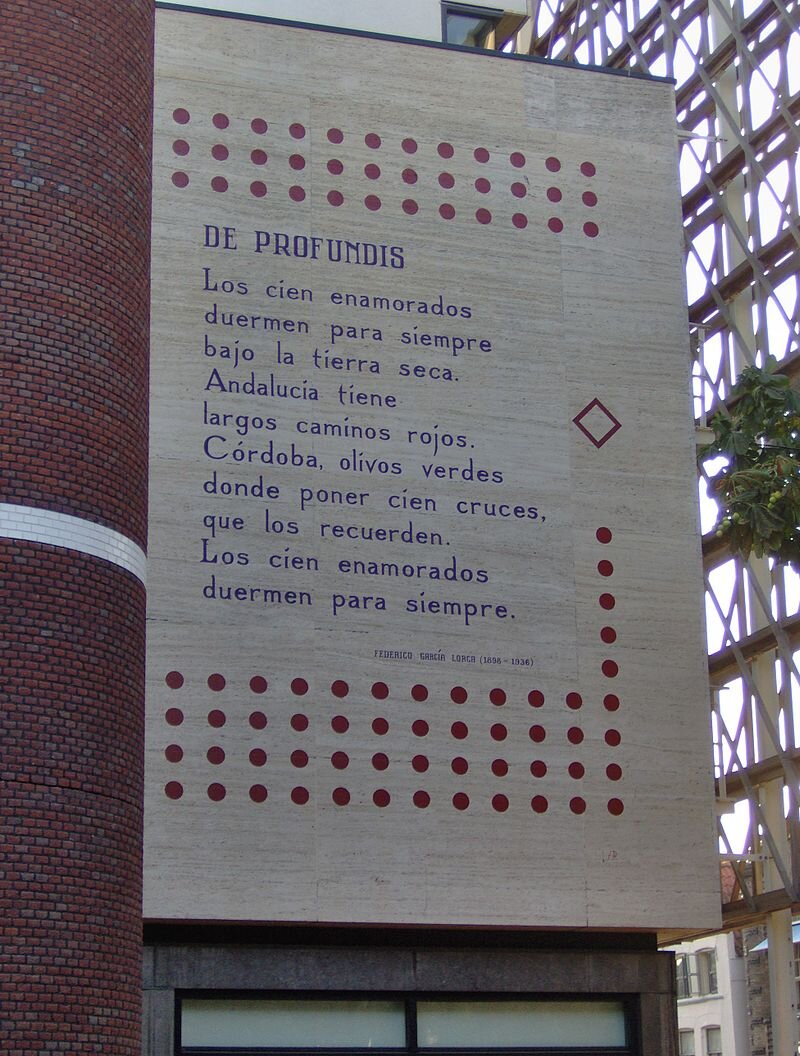 DE PROFUNDIS
Los cien enamorados
duermen para siempre
bajo la tierra seca.
Andalucía tiene
largos caminos rojos.
Córdoba, olivos verdes
donde poner cien cruces,
que los recuerden.
Los cien enamorados
duermen para siempre.
FEDERICO GARCÍA LORCA (1898-1936)